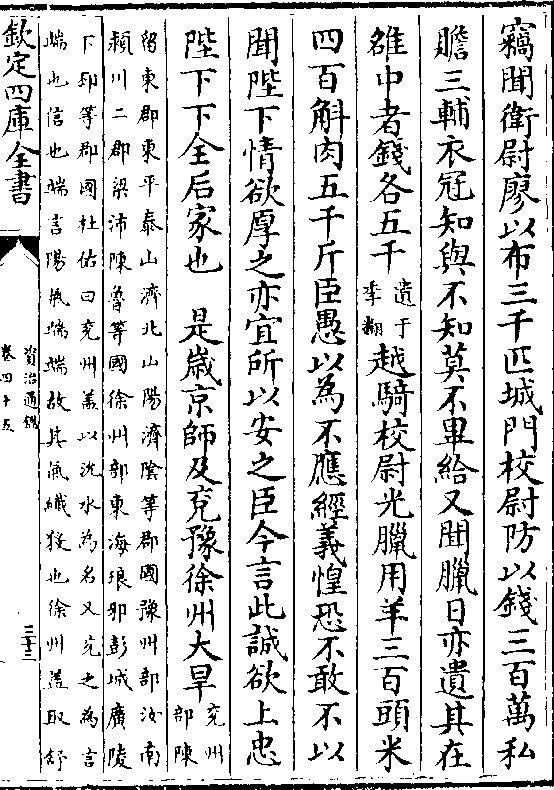 竊聞衛尉廖以布三千匹城門校尉防以錢三百萬私
贍三輔衣冠知與不知莫不畢給又聞臘日亦遺其在
雒中者錢各五千遺于季翻越騎校尉光臘用羊三百頭米
四百斛肉五千斤臣愚以為不應經義惶恐不敢不以
聞陛下情欲厚之亦宜所以安之臣今言此誠欲上忠
陛下下全后家也　是歲京師及兖豫徐州大旱兖州部陳
留東郡東平泰山濟北山陽濟陰等郡國豫州部汝南
潁川二郡梁沛陳魯等國徐州部東海琅邪彭城廣陵
下邳等郡國杜佑曰兖州蓋以沇水為名又兖之為言
端也信也端言陽氣端端故其氣纖殺也徐州蓋取舒
欽定四庫全書
資治通鑑
卷四十五
三十三